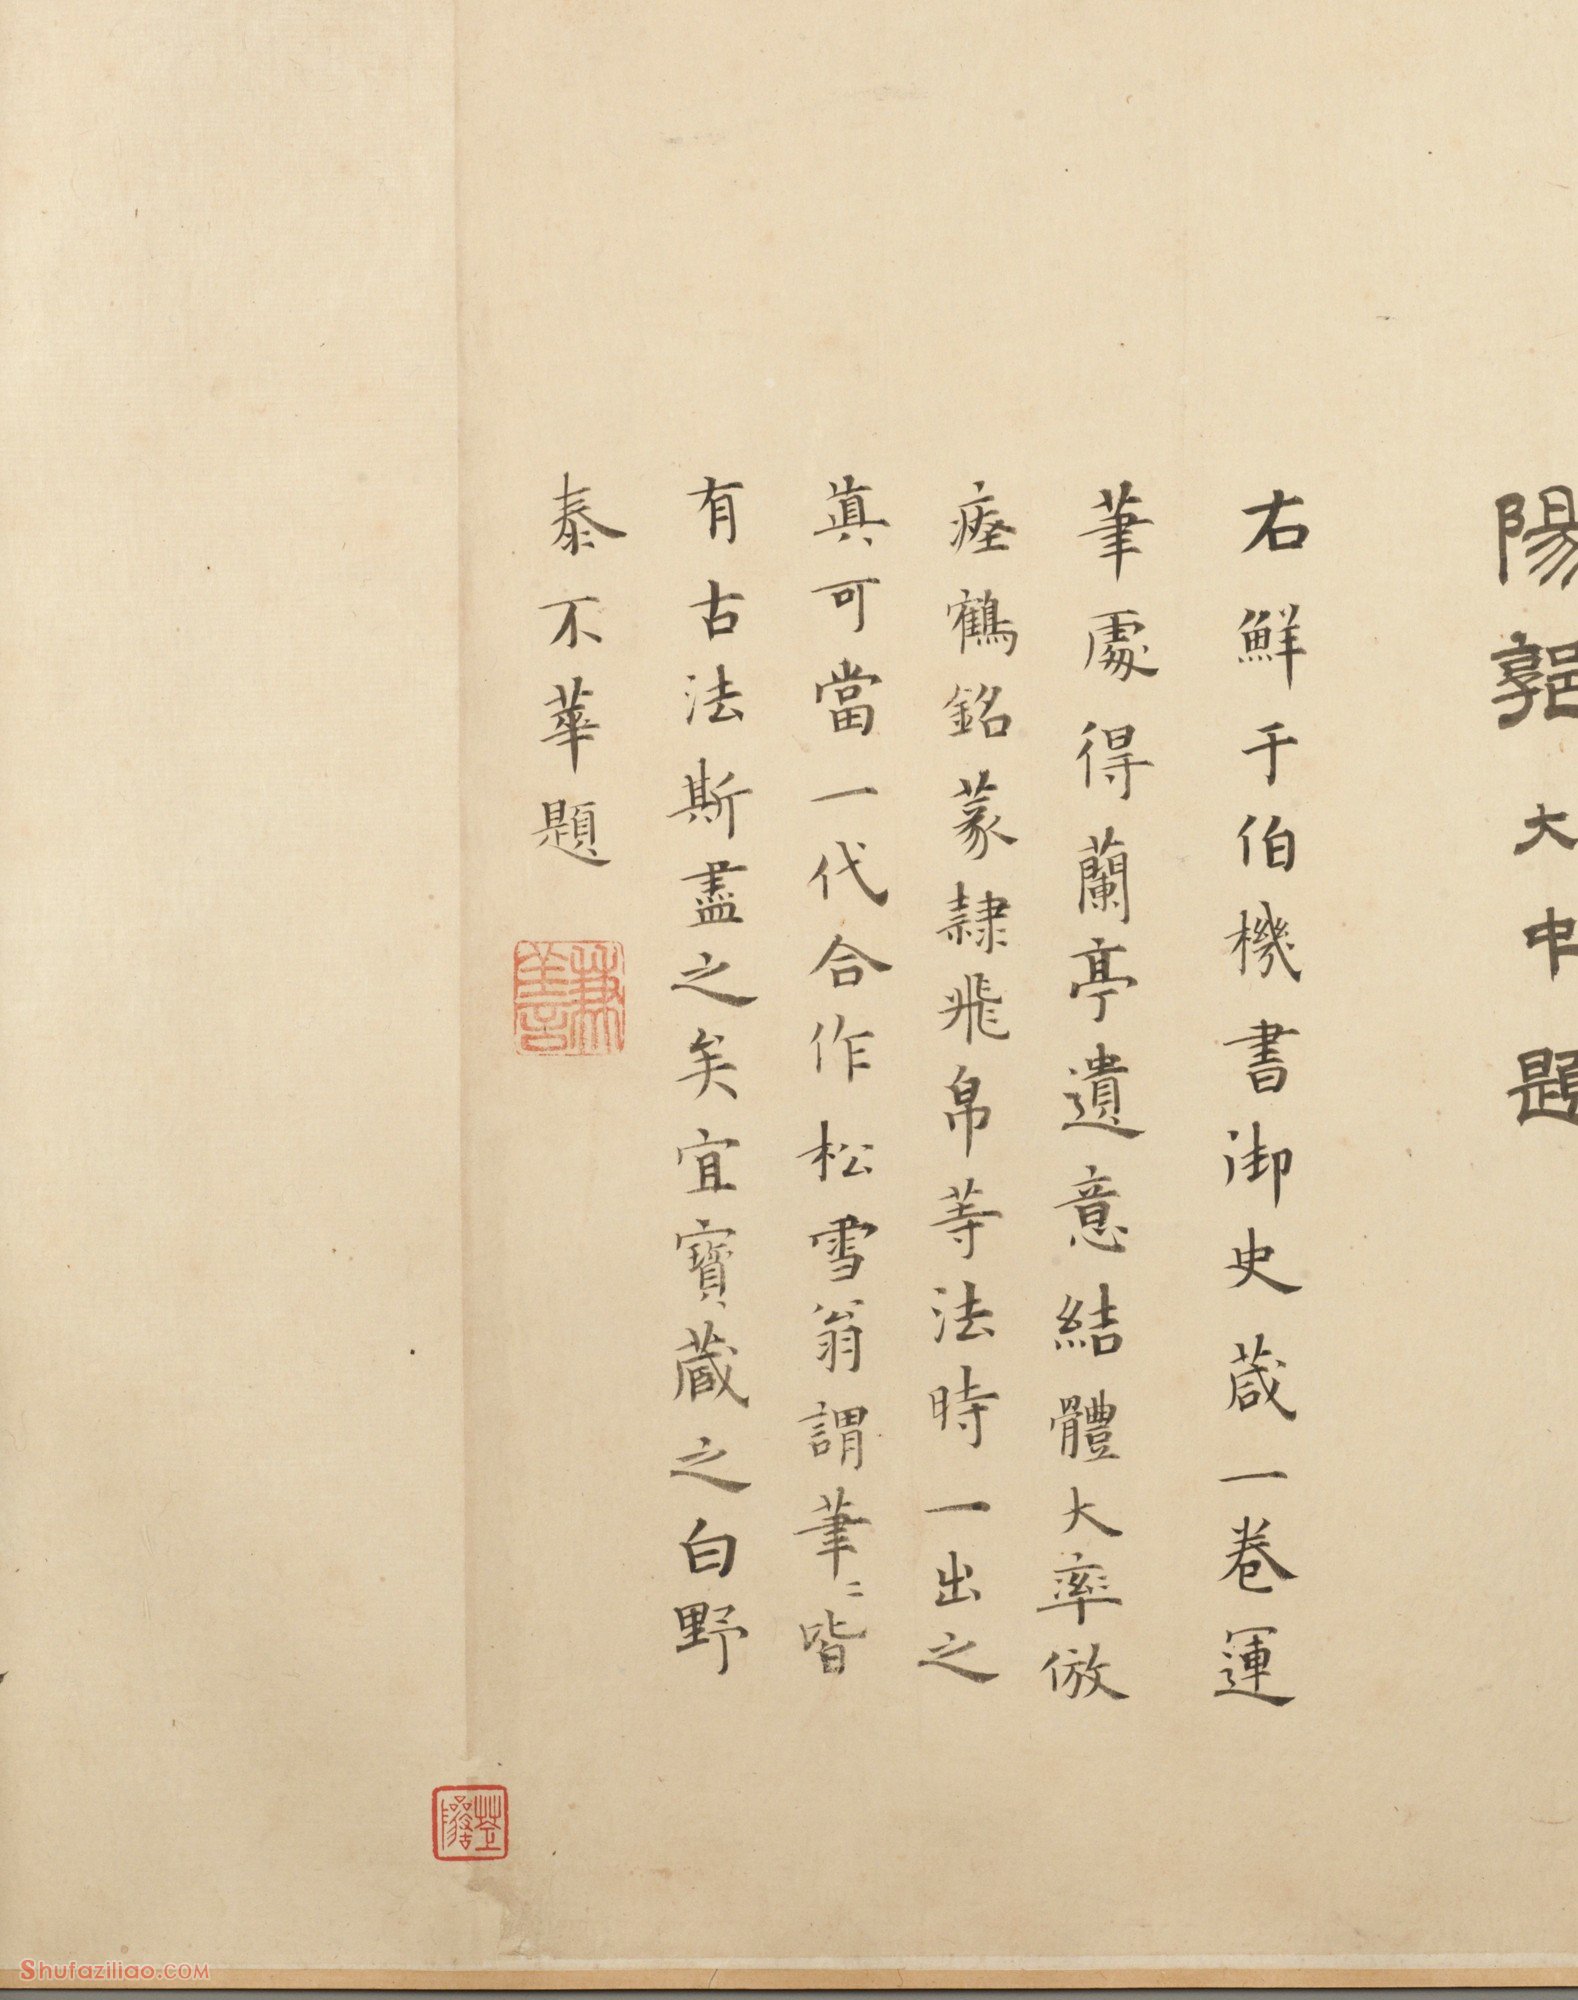 陽郭大中題
右鮮于伯機書御史葴一卷運
筆處得蘭亭遺意結體大率倣
瘞鶴銘篆隷飛帛等法時一出之
真可當一代合作松雪翁謂筆〻皆
有古法斯盡之矣宜寶藏之白野
泰不華題
兼善
Shufaziliao.COM